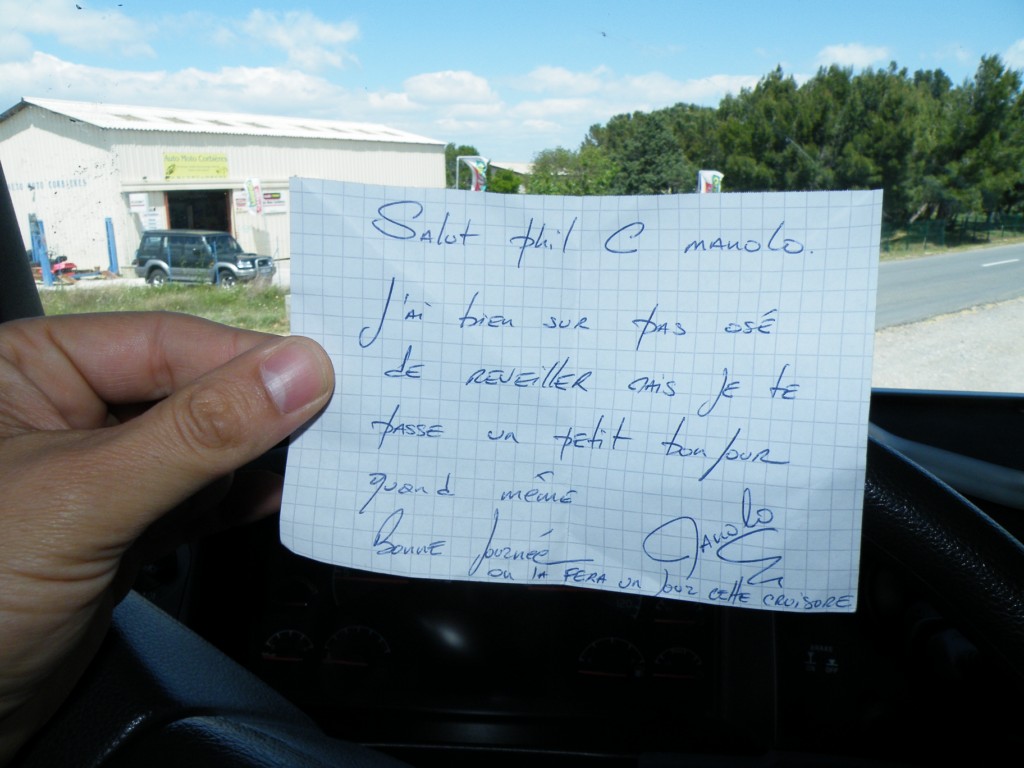 Auto Moto Corbières
AUTO CORBIÈRES
Salut phil C manolo.
J'ai bien sur pas osé
de reveiller mais je te
passe un petit bonjour
quand même
Bonne journée Manolo
on la fera un jour cette croisore